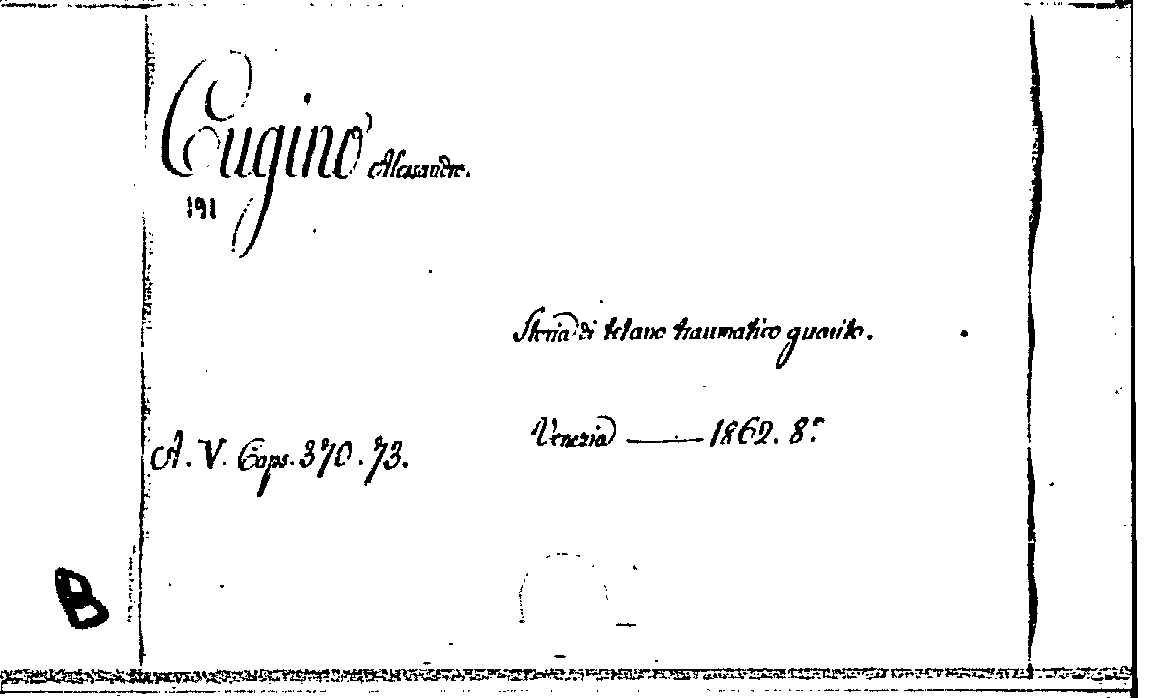 Cugino Alessandro.
191
Storia di tetano traumatico guarito.
Venezia ——— 1862. 8.º
A. V. Caps. 370. 73.
B